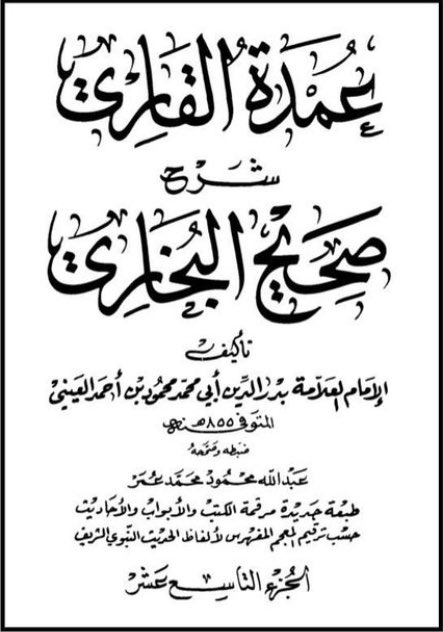 عُمْدَةُ القَارِيْ
شَرْحُ
صَحِيْحِ البُخَارِيْ
تَأليفْ
الإمَام العَلاَّمَة بَدْرالدِّين أبي محمّد محمُود بْن أحمَد العَينيْ
المتَوفى سَنة ٨٥٥هـ
ضبَطه وَصَحّحَهُ
عَبْدالله محْمُود محَمَّد عُمَر
طبعَة جَديدة مرقمة الكتبْ والأبوابْ والأحَاديْث
حسْب ترقيم المعجم المفهرس لألفاظ الحديث النبَوي الشريف
الجُزء التاسِع عَشَر